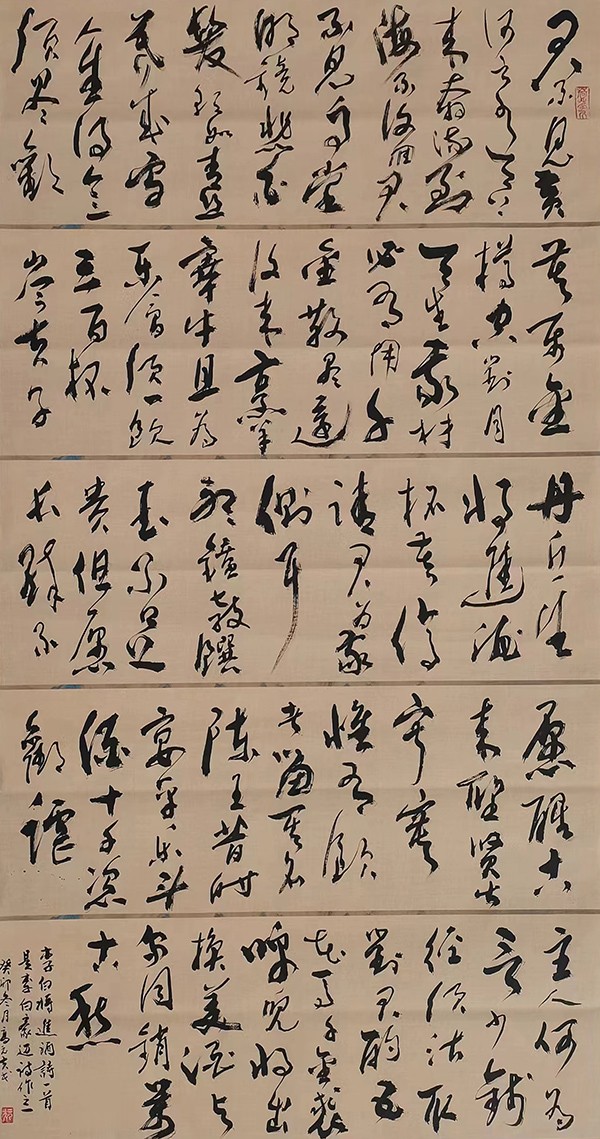 君不见黄
河之水天上
来奔流到
海不復回君
不见高堂
明镜悲白
髮朝如青丝
暮成雪
人生得意
须尽歡
莫使金
樽空對月
天生我材
必有用千
金散尽還
復来烹羊
宰牛且為
乐會须一飲
三百杯
岑夫子
丹丘生
将進酒
杯莫停
请君为我
側耳
聽鐘鼓饌
玉不足
貴但愿
长醉不
愿醒古
来聖賢皆
寂寞
惟有飲
者留其名
陈王昔时
宴平乐斗
酒十千恣
歡謔
主人何為
言少錢
径须沽取
對君酌五
花马千金裘
呼兒将出
换美酒与
尔同銷萬
古愁
李白将進酒詩一首
是李白豪迈诗作之一
癸卯冬月